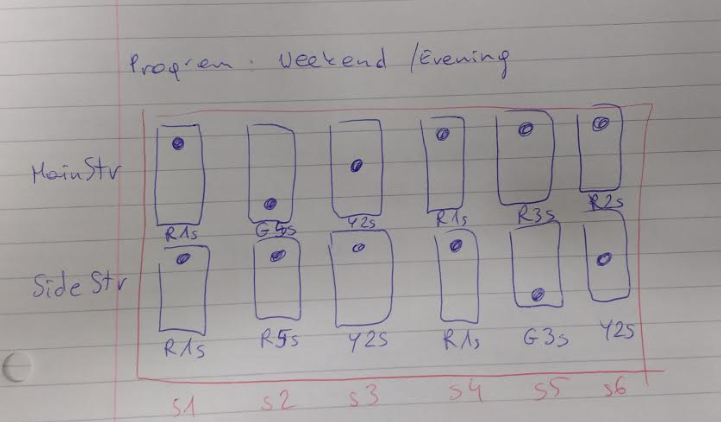 Program: Weekend / Evening
MainStr
R1s G5s Y2s R1s R3s R2s
Side Str
R1s R5s Y2s R1s G3s Y2s
S1 S2 S3 S4 S5 S6